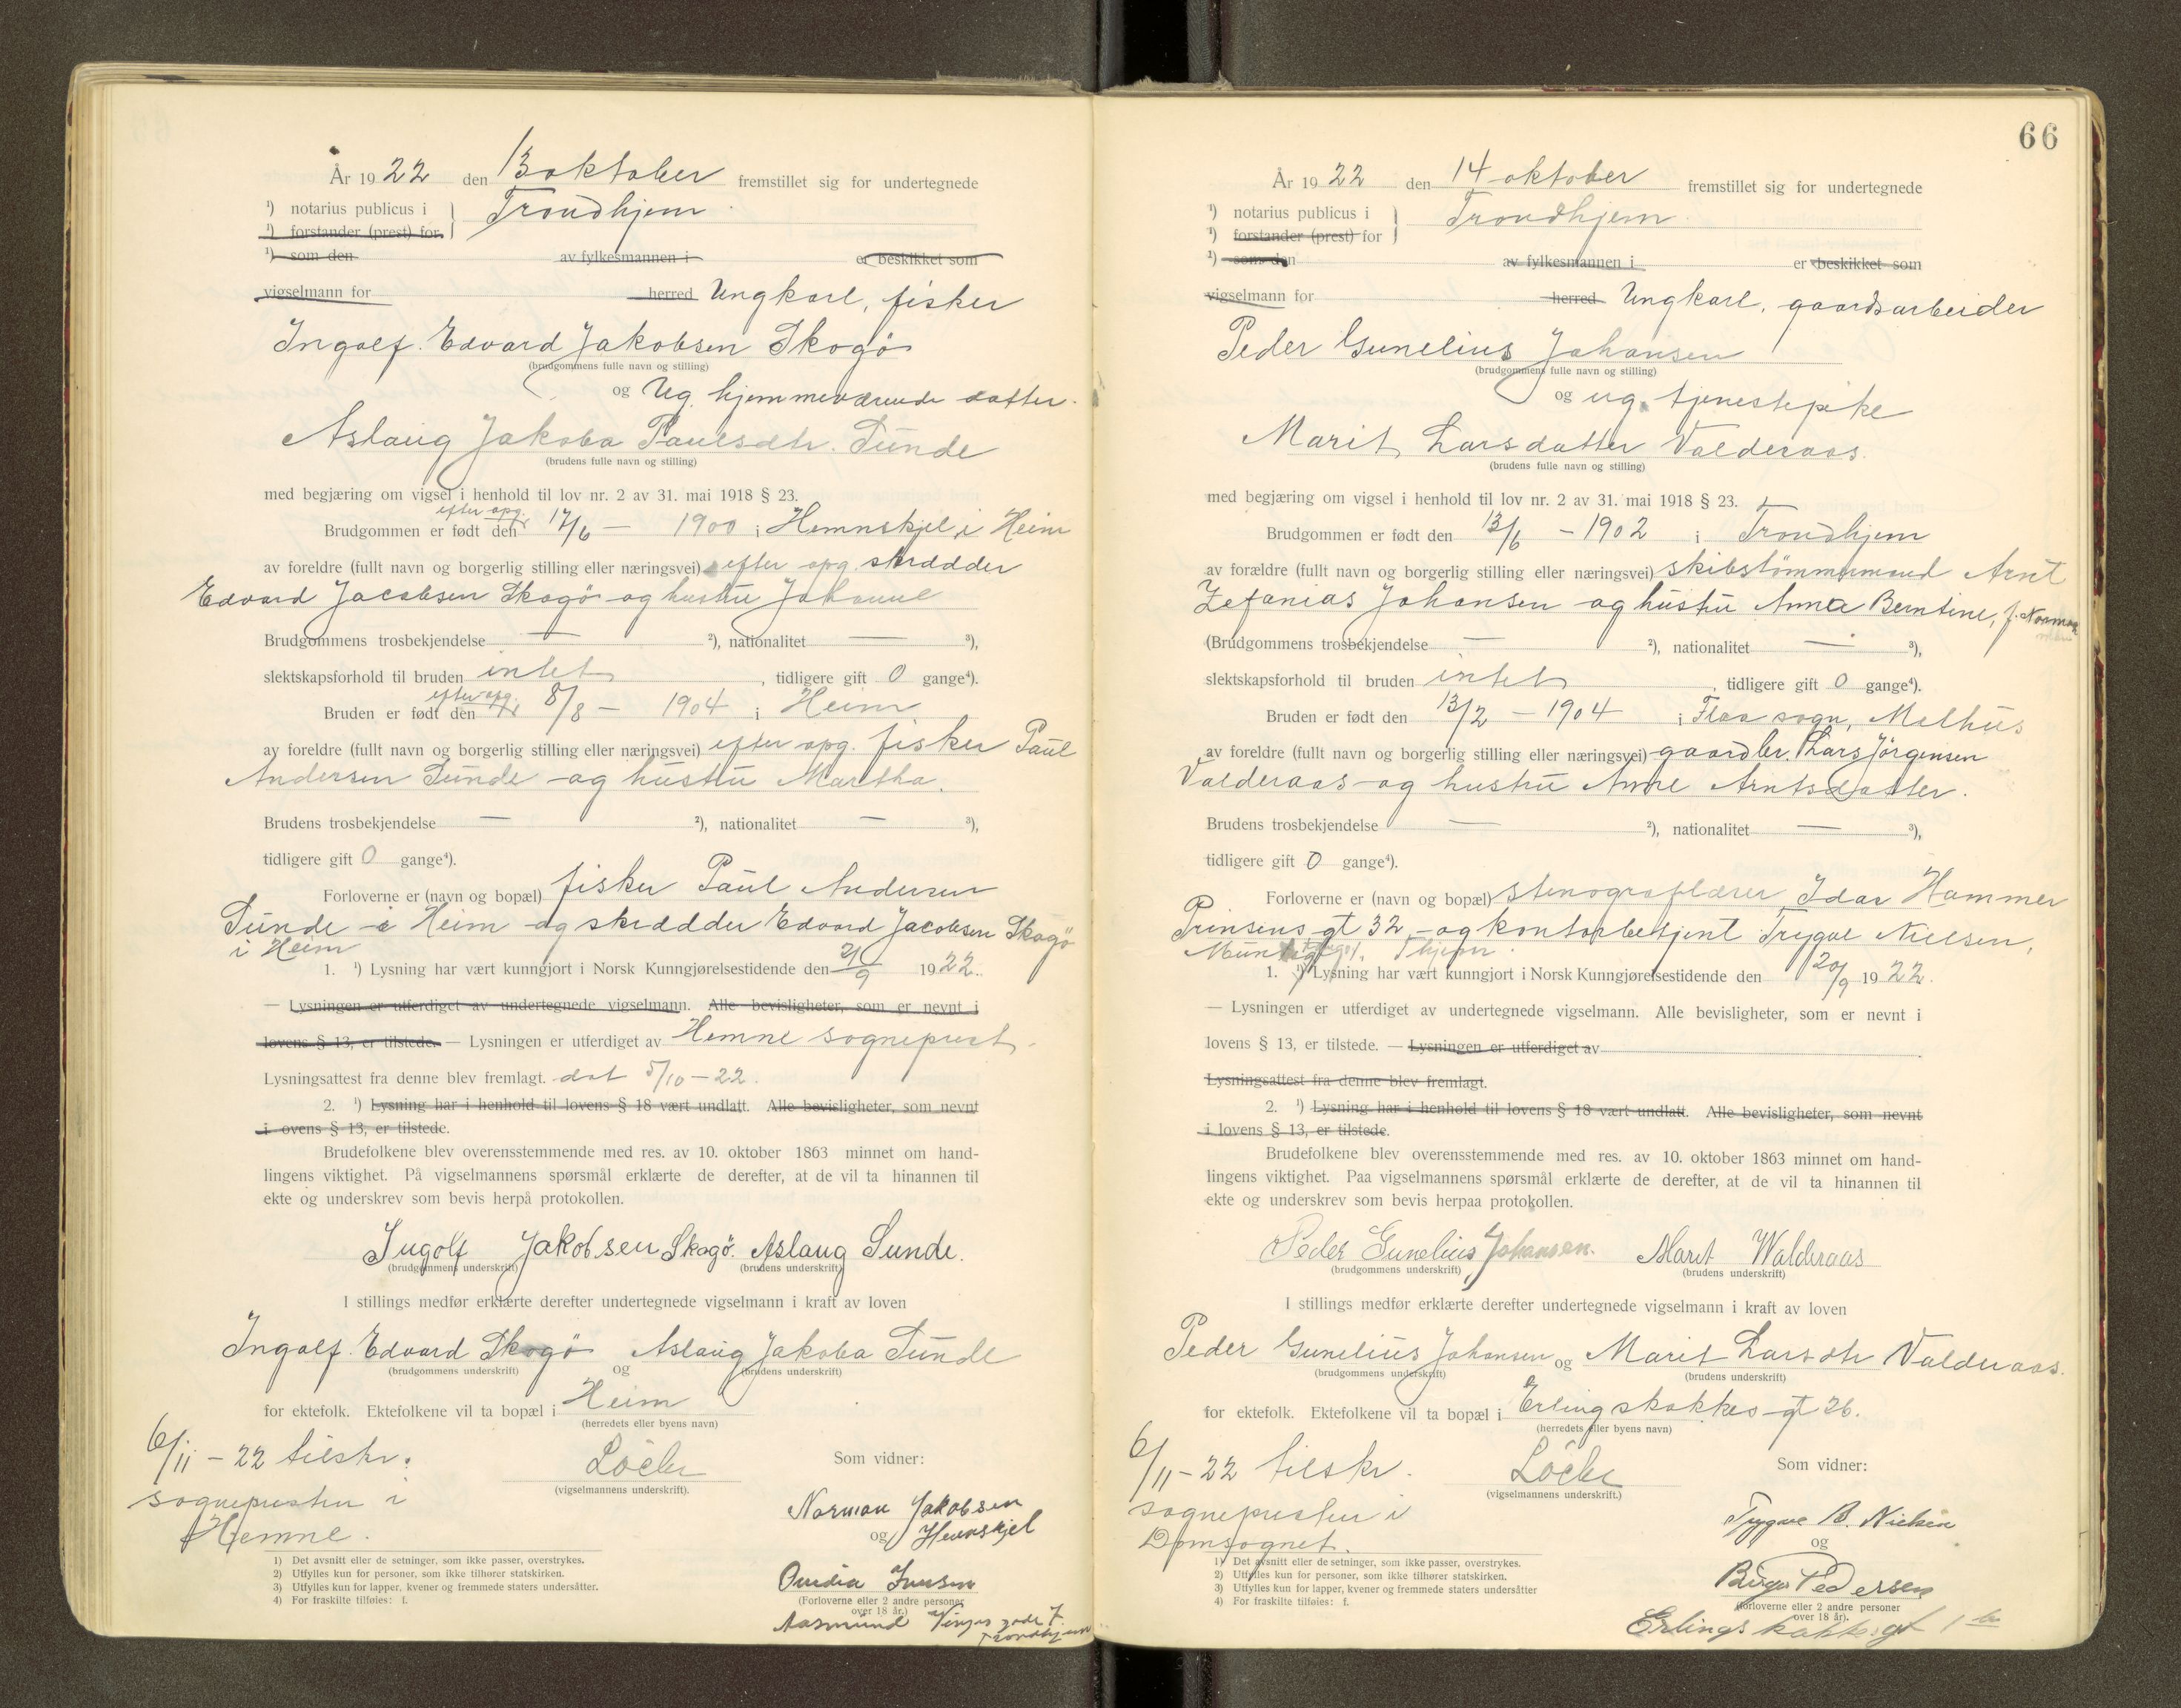 År 1922 den 13 oktober fremstillet sig for undertegnede
¹) notarius publicus i } Trondhjem
¹) forstander (prest) for
¹) som den av fylkesmannen i er beskikket som
vigselmann for herred Ungkarl, fisker
Ingolf Edvard Jakobsen Skogö
(brudgommens fulle navn og stilling)
og Ug. hjemmeværende datter
Aslaug Jakoba Paulsdtr. Sunde
(brudens fulle navn og stilling)
med begjæring om vigsel i henhold til lov nr. 2 av 31. mai 1918 § 23.
efter opg.
Brudgommen er født den 17/6 — 1900 i Hemnskjel i Heim
av foreldre (fullt navn og borgerlig stilling eller næringsvei) efter opg. skrædder
Edvard Jacobsen Skogö og hustru Johanne
Brudgommens trosbekjendelse — ²), nationalitet — ³),
slektskapsforhold til bruden intet, tidligere gift 0 gange⁴).
efter opg.
Bruden er født den 8/8 — 1904 i Heim
av foreldre (fullt navn og borgerlig stilling eller næringsvei) efter opg. fisker Paul
Andersen Sunde og hustru Martha.
Brudens trosbekjendelse — ²), nationalitet — ³),
tidligere gift 0 gange⁴).
Forloverne er (navn og bopæl) fisker Paul Andersen
Sunde i Heim og skrædder Edvard Jacobsen Skogö
i Heim
1. ¹) Lysning har vært kunngjort i Norsk Kunngjørelsestidende den 21/9 1922.
— Lysningen er utferdiget av undertegnede vigselmann. Alle bevisligheter, som er nevnt i
lovens § 13, er tilstede. — Lysningen er utferdiget av Hemne sogneprest.
Lysningsattest fra denne blev fremlagt. dat 5/10-22.
2. ¹) Lysning har i henhold til lovens § 18 vært undlatt. Alle bevisligheter, som nevnt
i ovens § 13, er tilstede.
Brudefolkene blev overensstemmende med res. av 10. oktober 1863 minnet om hand-
lingens viktighet. På vigselmannens spørsmål erklærte de derefter, at de vil ta hinannen til
ekte og underskrev som bevis herpå protokollen.
Ingolf Jakobsen Skogö. Aslaug Sunde.
(brudgommens underskrift) (brudens underskrift)
I stillings medfør erklærte derefter undertegnede vigselmann i kraft av loven
Ingolf Edvard Skogö og Aslaug Jakoba Sunde
(brudgommens underskrift) (brudens underskrift)
for ektefolk. Ektefolkene vil ta bopæl i Heim
(herredets eller byens navn)
6/11-22 tilskr.
sognepresten i
Hemne.
Löchen
(vigselmannens underskrift).
Som vidner:
Norman Jakobsen
og Hemskjel
(Forloverne eller 2 andre personer
over 18 år.)
Aasmund Vinjes gade 7.
Trondhjem
1) Det avsnitt eller de setninger, som ikke passer, overstrykes.
2) Utfylles kun for personer, som ikke tilhører statskirken.
3) Utfylles kun for lapper, kvener og fremmede staters undersåtter.
4) For fraskilte tilføies: f.
66
År 1922 den 14 oktober fremstillet sig for undertegnede
¹) notarius publicus i } Trondhjem
¹) forstander (prest) for
¹) som den av fylkesmannen i er beskikket som
vigselmann for herred Ungkarl, gaardsarbeider
Peder Gunelius Johansen
(brudgommens fulle navn og stilling)
og ug. tjenestepike
Marit Larsdatter Valderaas
(brudens fulle navn og stilling)
med begjæring om vigsel i henhold til lov nr. 2 av 31. mai 1918 § 23.
Brudgommen er født den 13/6 — 1902 i Trondhjem
av forældre (fullt navn og borgerlig stilling eller næringsvei) skibstömmermand Arnt
Zefanias Johansen og hustru Anna Berntine, f. Norman
(Brudgommens trosbekjendelse — ²), nationalitet — ³),
slektskapsforhold til bruden intet, tidligere gift 0 gange⁴).
Bruden er født den 13/2 — 1904 i Flaa sogn, Melhus
av foreldre (fullt navn og borgerlig stilling eller næringsvei) gaardbr. Lars Jörgensen
Valderaas og hustru Anne Arntsdatter.
Brudens trosbekjendelse — ²), nationalitet — ³),
tidligere gift 0 gange⁴).
Forloverne er (navn og bopæl) stenograflærer Idar Hammer
Prinsens gt 32 og kontorbetjent Trygve Nielsen,
Thjem.
1. ¹) Lysning har vært kunngjort i Norsk Kunngjørelsestidende den 20/9 1922.
— Lysningen er utferdiget av undertegnede vigselmann. Alle bevisligheter, som er nevnt i
lovens § 13, er tilstede. — Lysningen er utferdiget av
Lysningsattest fra denne blev fremlagt.
2. ¹) Lysning har i henhold til lovens § 18 vært undlatt. Alle bevisligheter, som nevnt
i lovens § 13, er tilstede.
Brudefolkene blev overensstemmende med res. av 10. oktober 1863 minnet om hand-
lingens viktighet. Paa vigselmannens spørsmål erklærte de derefter, at de vil ta hinannen til
ekte og underskrev som bevis herpaa protokollen.
Peder Gunelius Johansen. Marit Walderaas
(brudgommens underskrift) (brudens underskrift)
I stillings medfør erklærte derefter undertegnede vigselmann i kraft av loven
Peder Gunelius Johansen og Marit Larsdtr Valderaas.
(brudgommens underskrift) (brudens underskrift)
for ektefolk. Ektefolkene vil ta bopæl i Erling skakkes gt 26.
(herredets eller byens navn)
6/11-22 tilskr.
sognepresten i
Domsognet.
Löchen
(vigselmannens underskrift.)
Som vidner:
Trygve B. Nielsen
og
Birger Pedersen
(forloverne eller 2 andre personer
over 18 år).
Erlings kakkes gt
1) Det avsnitt eller de setninger, som ikke passer, overstrykes.
2) Utfylles kun for personer, som ikke tilhører statskirken.
3) Utfylles kun for lapper, kvener og fremmede staters undersåtter
4) For fraskilte tilføies: f.